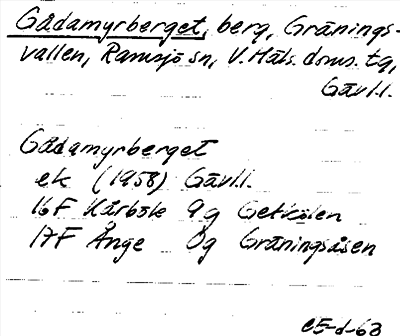 Gådamyrberget, berg, Gränings-
vallen, Ramsjö sn, V. Häls. doms. tg,
Gävl.l.
Gådamyrberget
ek (1958) Gävl.l.
16F Kårböle 9g Getkölen
17F Ånge 0g Gräningsåsen
CE-d-63